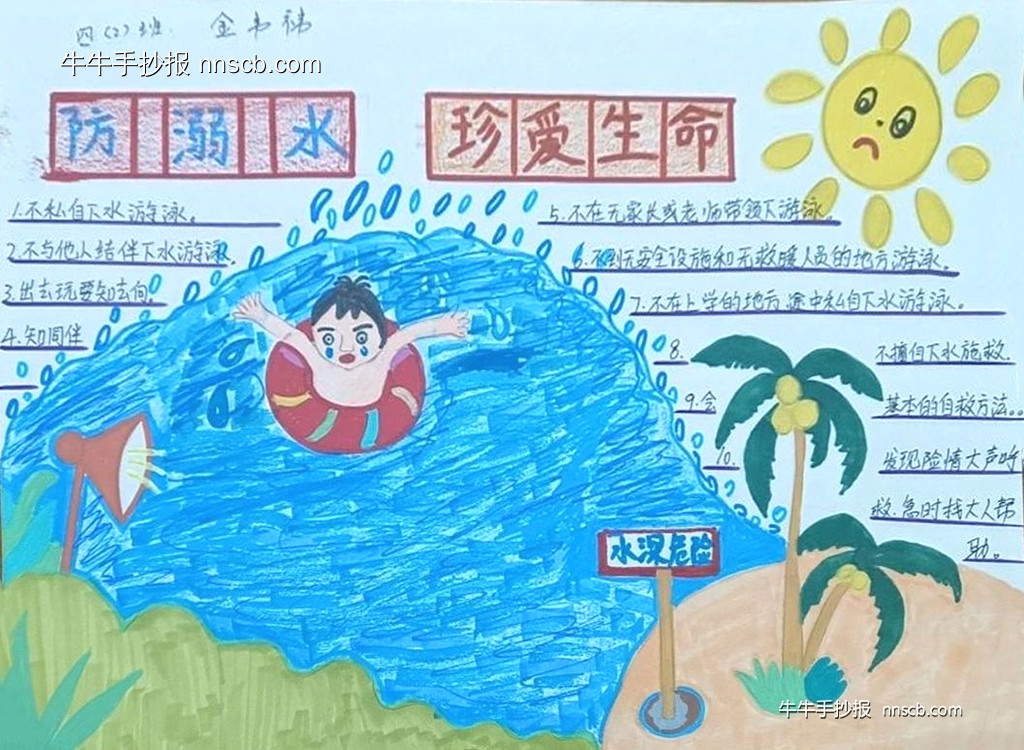 四(2)班. 金韦祎
牛牛手抄报 nnscb.com
防溺水 珍爱生命
1.不私自下水游泳。
2.不与他人结伴下水游泳.
3.出去玩要知去向.
4.知同伴
5.不在无家长或老师带领下游泳.
6.不到无安全设施和无救援人员的地方游泳.
7.不在上学的地方途中私自下水游泳.
8. 不擅自下水施救.
9.会 基本的自救方法..
10. 发现险情大声呼
救.急时找大人帮
助。
水深危险
牛牛手抄报 nnscb.com